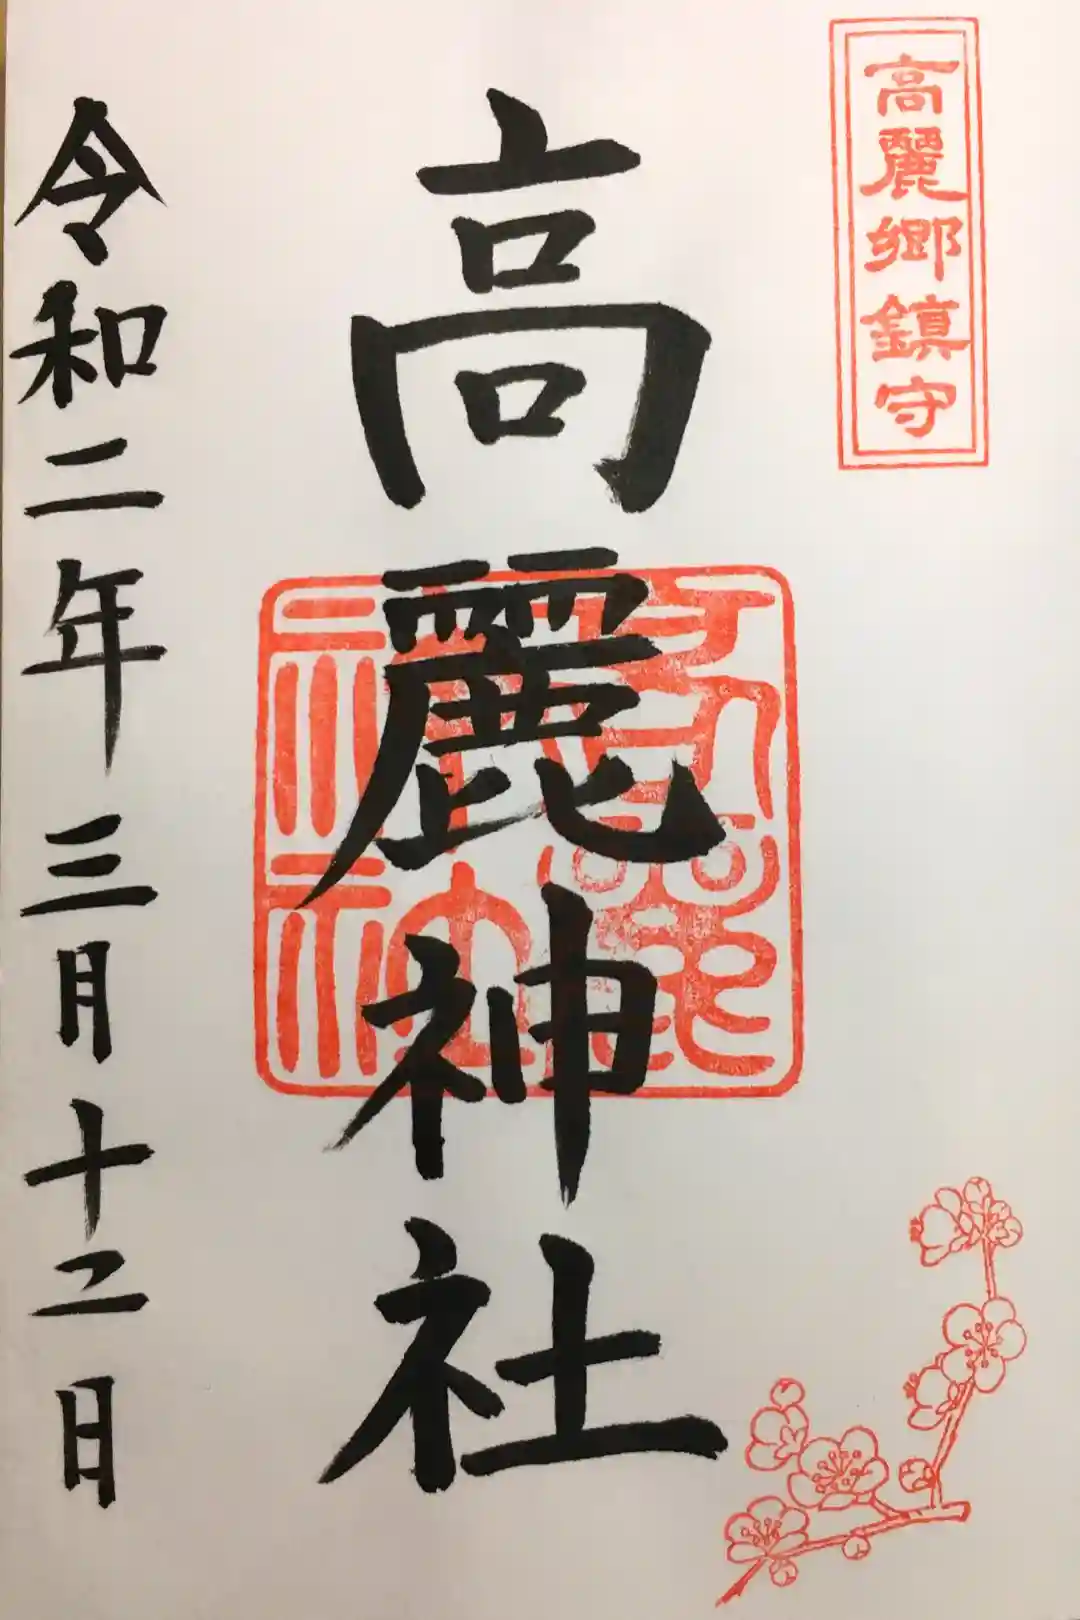 高麗郷鎮守
高麗神社
高麗神社
令和二年三月十二日